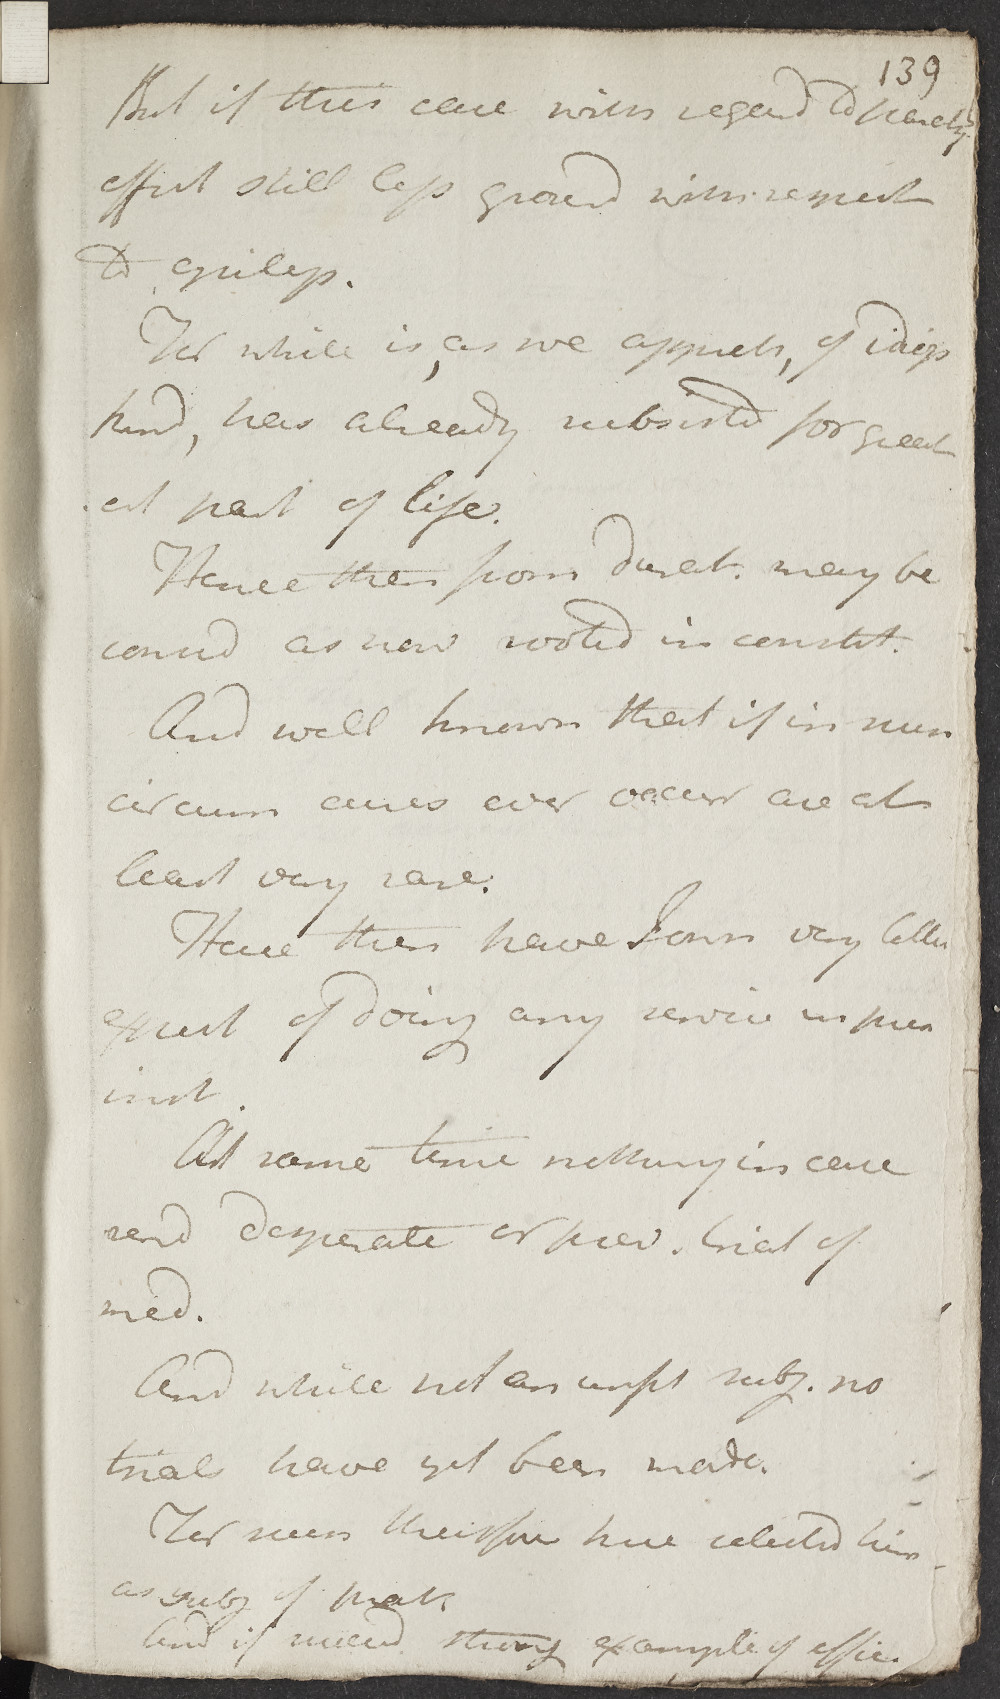 139
But if this case with regard to paraly
effect still less ground with respect
to epilep.
For while is, as we appreh, of idiop
kind, has already subsisted for great
est part of life.
Hence then from durat. may be
consid as now rooted in constit.
And well known that if in such
circum cures ever occur are at
least very rare.
Here then have I own very little
expect of doing any service in pres
inst.
At same time nothing in case
rend desperate or prev. trial of
med.
And while not an unfit subj. no
trials have yet been made.
For reas therefore have selected him
as subj of pract.
And if succeed strong example of effic.